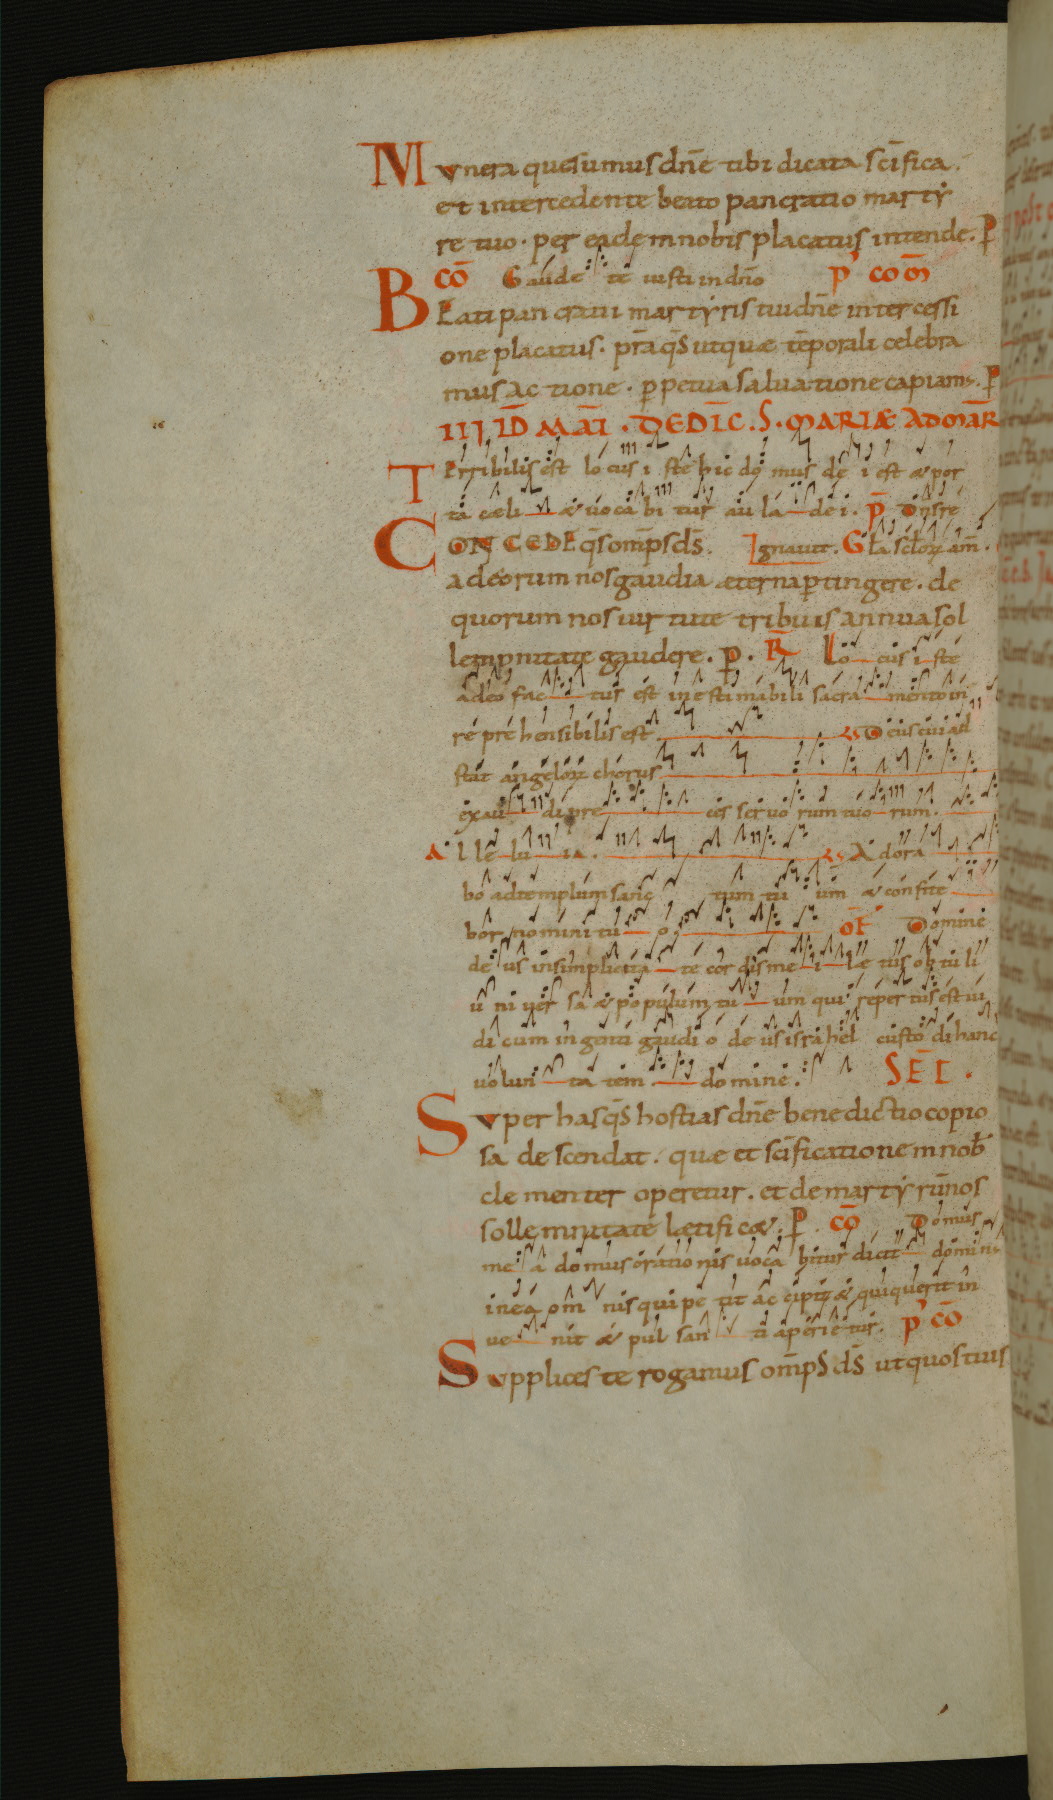 Munera quesumus dn̄e tibi dicata scīfica.
et intercedente beato pancratio marty
re tuo. per eadem nobis placatus intende. P
CŌ Gaudete iusti in dn̄o P' COM̄
Beati pancratii martyris tui dn̄e intercessi
one placatus. p̄ra q̄s ut quæ tēporali celebra
mus actione. perpetua saluatione capiam;. P
IIII ID MAĪ. DEDIC̄. S. MARIÆ AD MAR̄
Terribilis est locus iste hic domus dei est & por
ta cæli & uocabitur aula dei. P̄ Dn̄s re
CONCEDE q̄s om̄ps d̄s. Ignauit. Gl̄a sc̄loꝝ am̄.
ad eorum nos gaudia æterna pertingere. de
quorum nos uirtute tribuis annua sol
lempnitate gaudere. p. R̄ Locus iste
a deo factus est inestimabili sacramento in
reprehensibilis est V Deus cui ad
stat angeloꝝ chorus
exaudi preces seruorum tuorum.
Alleluia. V Adora
bo ad templum sanctum tuum & confite
bor nomini tuo OF̄ Domine
deus in simplicitate cordis mei lætus obtuli
uniuersa & populum tuum qui repertus est ui
di cum ingenti gaudio deus israhel custodi hanc
uoluntatem domine. SEC̄.
Super has q̄s hostias dn̄e benedictio copio
sa descendat. quæ et scīficationem nob̄
clementer operetur. et de martyrū nos
sollemnitate lætific&. P. CŌ Domus
mea domus orationis uocabitur dicit domin;
in ea omnis qui petit accipit & qui querit in
uenit & pulsanti aperietur. P' CŌ
Supplices te rogamus om̄ps d̄s ut quos tuis